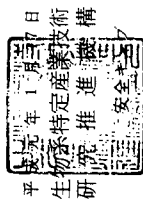 平成元年 1月 日
生物系特定産業技術
研究推進機構
安全キ